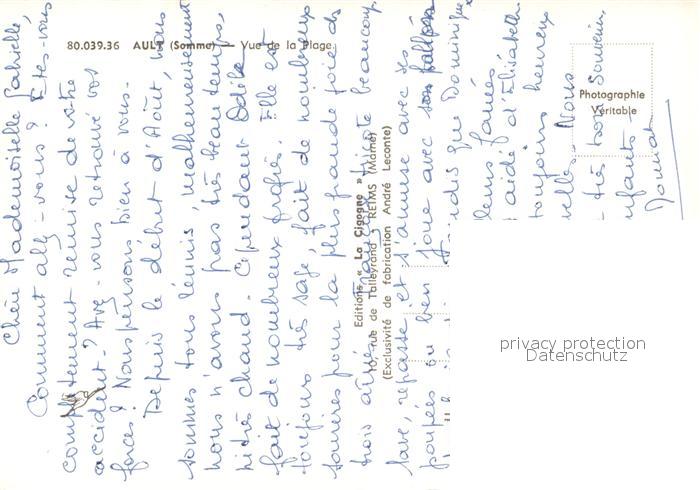 80.039.36 AULT (Somme) — Vue de la Plage
Photographie
Véritable
Editions « La Cigogne »
10, rue de Talleyrand - REIMS (Marne)
(Exclusivité de fabrication André Leconte)
Chère Mademoiselle Gabrielle,
Comment allez-vous? Êtes-vous
complètement remise de votre
accident? Avez-vous retrouvé vos
forces? Nous pensons bien à vous.
Depuis le début d'Août, nous
sommes tous réunis malheureusement
nous n'avons pas très beau temps,
ni très chaud. Cependant Odile
fait de nombreux progrès. Elle est
toujours très sage, fait de nombreux
sourires pour la plus grande joie de
trois aînés. Françoise tricote beaucoup
lave, repasse et s'amuse avec ses
poupées ou bien joue avec son ballon
dis que Dominique
leurs fanées
aidé d'Elisabeth
toujours heureux
elle. Nous
très bon souvenir.
nfants
privacy protection
Datenschutz